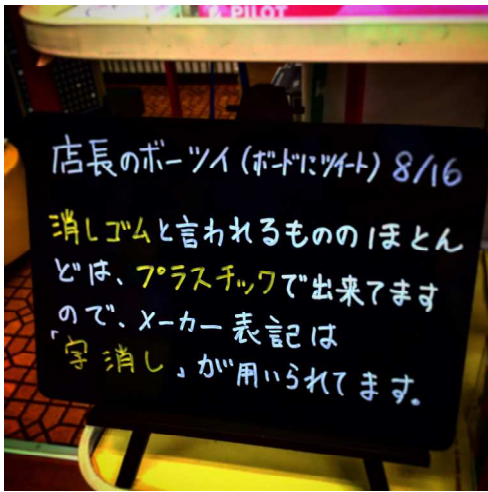 PILOT
店長のボーツイ(ボードにツイート) 8/16
消しゴムと言われるもののほとん
どは、プラスチックで出来てます
ので、メーカー表記は
「字消し」が用いられてます。